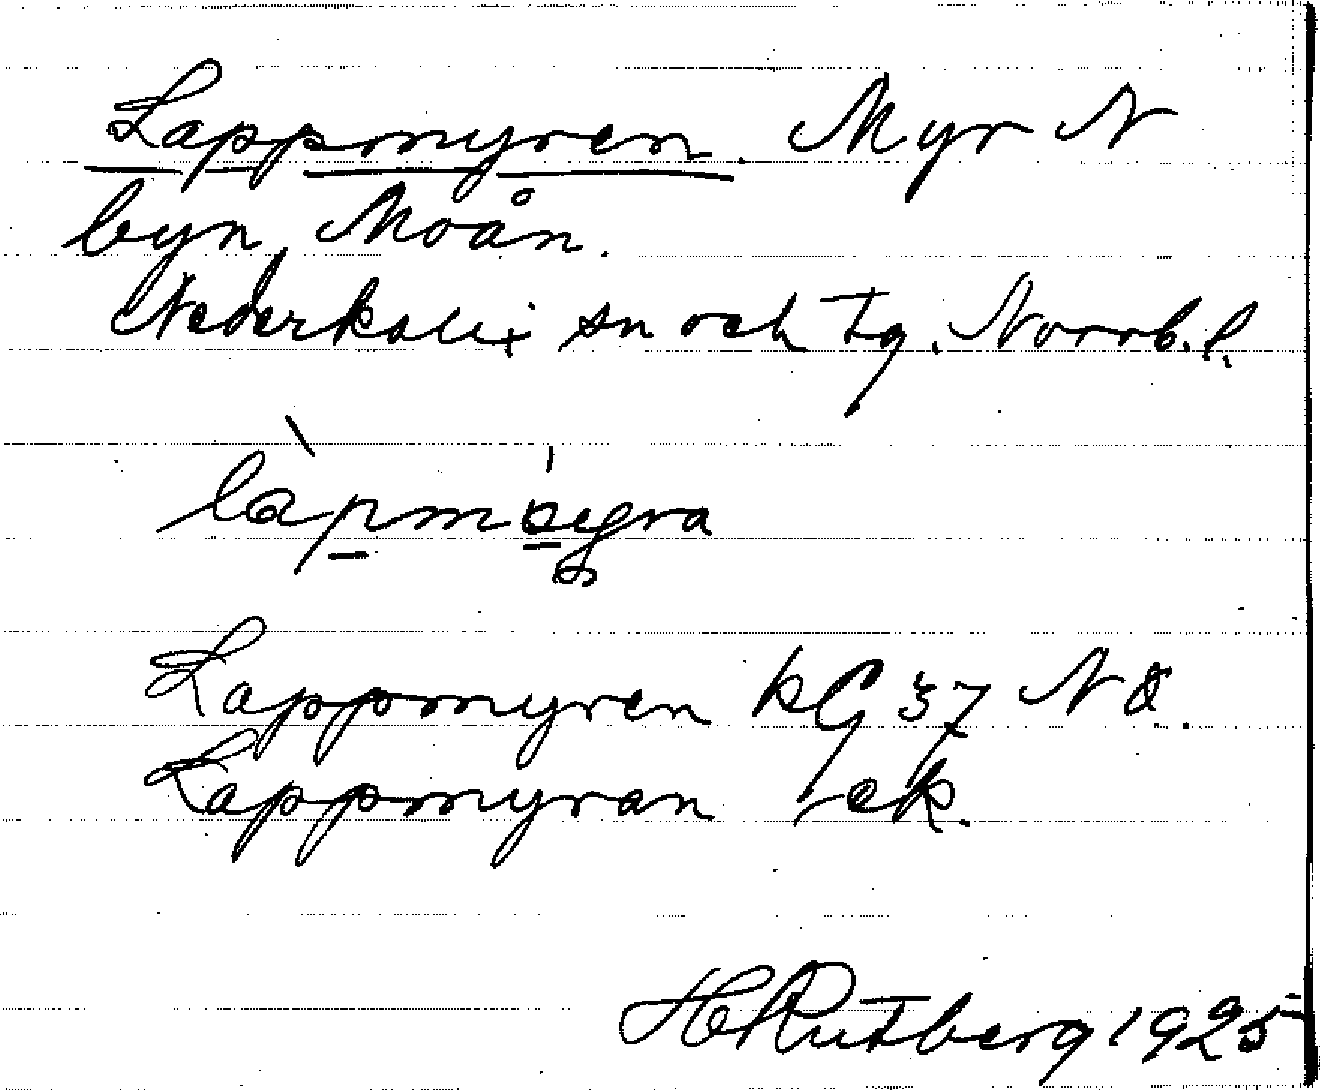 Lappmyren. Myr N
byn Moån.
Nederkalix sn och tg. Norrb.l.
Lappmyren kG 37 NÖ.
Lappmyran ek.
H Rutberg 1925